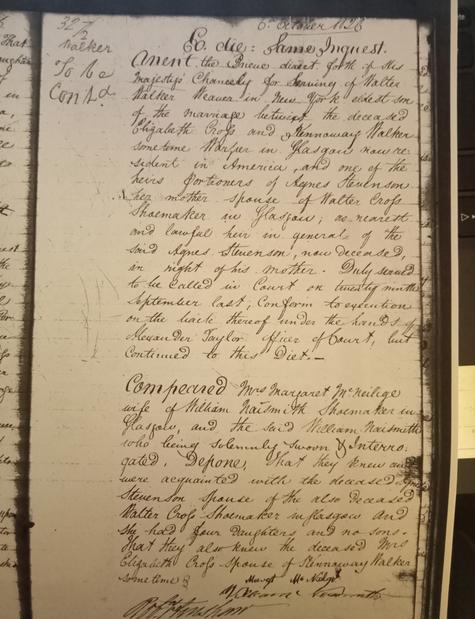 327
6th October 1826
Walker
To be
Contd.
Eo die: Same Inquest.
Anent the Brieve direct forth of His
Majesty's Chancely for Serving of Walter
Walker Weaver in New York eldest son
of the marriage betwixt the deceased
Elizabeth Cross and Kennoway Walker
sometime Warper in Glasgow now re
sident in America, and one of the
heirs portioners of Agnes Stevenson
her mother spouse of Walter Cross
Shoemaker in Glasgow; as nearest
and lawful heir in general of the
said Agnes Stevenson, now deceased,
in right of his mother. Duly
to be called in Court on twenty ninth
September last, Conform to execution
on the back thereof under the hands of
Alexander Taylor officer of Court, but
Continued to this Diet.—
Compeared Mrs Margaret McNeilige
wife of William Naismith Shoemaker in
Glasgow, and the said William Naismith
who being solemnly sworn & Interro
gated, Depone, That they knew and
were acquainted with the deceased
Stevenson spouse of the also deceased
Walter Cross Shoemaker in Glasgow and
she had four daughters and no sons.
That they also knew the deceased Mrs
Elizabeth Cross Spouse of Kennoway Walker
sometime
Margt McNeilige